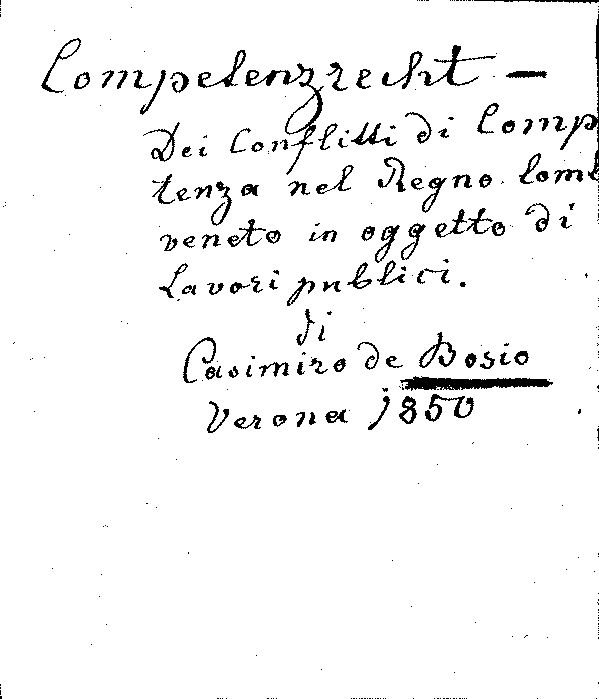 Competenzrecht —
Dei Conflitti di Comp
tenza nel Regno lomb
veneto in oggetto di
Lavori publici.
di
Casimiro de Bosio
Verona 1850